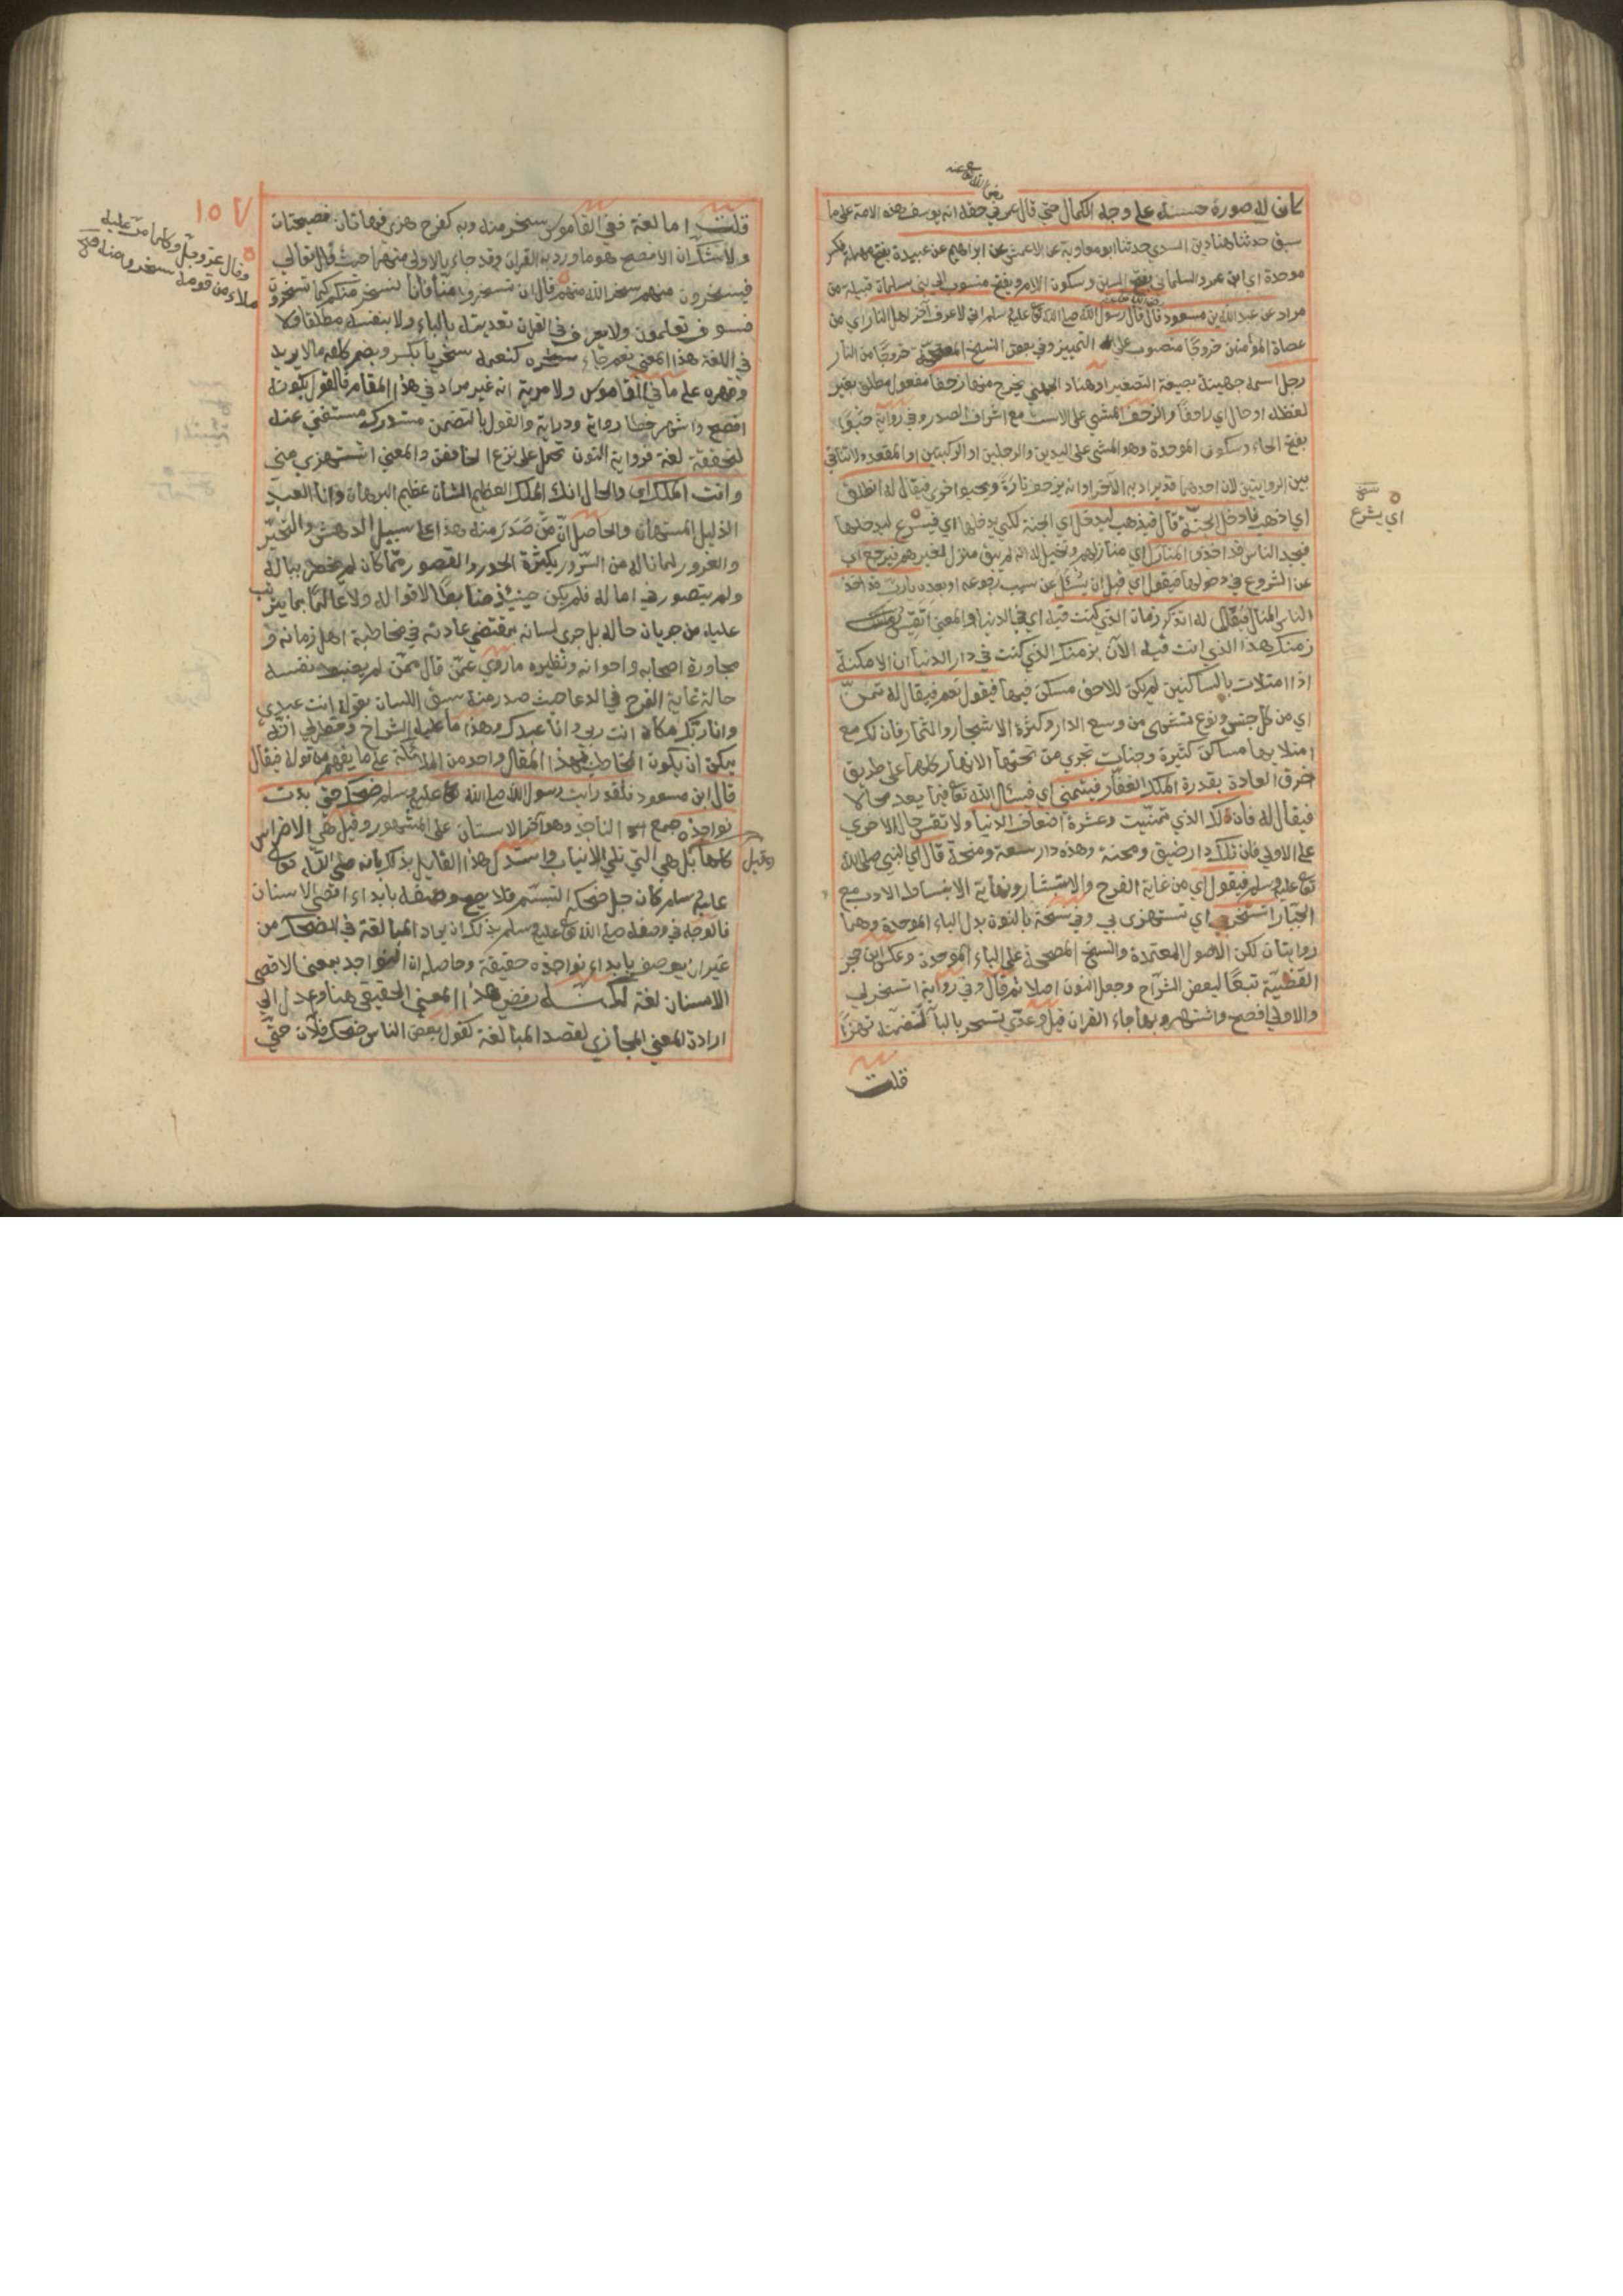 رضي الله تعالى عنه
كان له صورة حسنة على وجه الكمال حتى قال عمر في حقه انه يوسف هذه الامة على ما
سبق حدثنا هناد بن السري حدثنا ابو معاوية عن الاعمش عن ابراهيم عن عبيدة بفتح مهملة فكسر
موحدة اي ابن عمرو السلماني بفتح السين وسكون اللام ويفتح منسوب الى بني سلمان قبيلة من
مراد عن عبد الله بن مسعود قال قال رسول الله صلى الله تع عليه وسلم اني لاعرف آخر اهل النار اي من
عصاة المؤمنين خروجا منصوب على التمييز وفي بعض النسخ المصححة خروجا من النار
رجل اسمه جهينة بصيغة التصغير او هناد الجهني يخرج منها زحفا مفعول مطلق بغير
لفظه او حال اي زاحفا والزحف المشي على الاست مع اشراف الصدر وفي رواية حبوا
بفتح الحاء وسكون الموحدة وهو المشي على اليدين والرجلين او الركبتين او المقعد ولا تنافي
بين الروايتين لان احدهما قد يراد به الآخر او انه يزحف تارة ويحبو اخرى فيقال له انطلق
اي اذهب فادخل الجنة قال فيذهب ليدخل اي الجنة لكي يدخلها اي فيسرع ليدخلها
فيجد الناس قد اخذوا المنازل اي منازلهم وتخيل له انه لم يبق منزل لغيرهم فيرجع اي
عن الشروع في دخولها فيقول اي قبل ان يسئل عن سبب رجوعه او بعده يا رب قد اخذ
الناس المنازل فيقال له اتذكر زمان الذي كنت فيه اي في الدنيا والمعنى اتقيس
زمنك هذا الذي انت فيه الآن بزمنك الذي كنت في دار الدنيا ان الامكنة
اذا امتلات بالساكنين لم يكن للاحق مسكن فيها فيقول نعم فيقال له تمن
اي من كل جنس ونوع تشتهي من وسع الدار وكثرة الاشجار والثمار فان لك مع
امتلائها مساكن كثيرة وجنات تجري من تحتها الانهار كلها على طريق
خرق العادة بقدرة الملك الغفار فيتمنى اي فيسأل الله تعا فيما يعد محالا
فيقال له فان لك الذي تمنيت وعشرة اضعاف الدنيا ولا تقس حال الاخرى
على الاولى فان تلك دار ضيق ومحنة وهذه دار سعة ومنحة قال اي النبي صلى الله
تعا عليه وسلم فيقول اي من غاية الفرح والاستبشار ونهاية الانبساط الادب مع
الجبار اتسخر بي اي تستهزئ بي وفي نسخة بالنون بدل الباء الموحدة وهما
روايتان لكن الاصول المعتمدة والنسخ المصححة على الباء الموحدة وعكس ابن حجر
القضية تبعا لبعض الشراح وجعل النون اصلا ثم قال وفي رواية اتسخر بي
والاولى افصح واشتهر وبها جاء القران قيل وعدي تسخر بالباء لتضمنه تهزأ
قلت
نسخة
اي يشرع
١٥٧
قلت اما لغة ففي القاموس سخر منه وبه كفرح هزئ فهما لغتان فصيحتان
ولا شك ان الافصح هو ما ورد به القران وقد جاء بالاولى منهما حيث قال تعالى
فيسخرون منهم سخر الله منهم قال ان تسخروا منا فانا نسخر منكم كما تسخرون
فسوف تعلمون ولا يعرف في القران تعديته بالباء ولا بنفسه مطلقا ولا
في اللغة هذا المعنى نعم جاء سخره كمنعه سخريا بكسر ويضم كلفه ما لا يريد
وقهره على ما في القاموس ولا مرية انه غير مراد في هذا المقام فالقول بكونه
افصح واشهر خطا رواية ودراية والقول بالتضمن مستدرك مستغنى عنه
لتحققه لغة فرواية النون تحمل على نزع الخافض والمعنى اتستهزئ مني
وانت الملك اي والحال انك الملك العظيم الشان عظيم البرهان وانا العبد
الذليل المستهان والحاصل ان من صدر منه هذا على سبيل الدهش والتحير
والغرور لما ناله من السرور بكثرة الحور والقصور مما كان لم يخطر بباله
ولم يتصور في اماله فلم يكن حينئذ ضابطا لاقواله ولا عالما بما يترتب
عليه من جريان حاله بل جرى لسانه بمقتضى عادته في مخاطبة اهل زمانه و
محاورة اصحابه واخوانه ونظيره ما روي عمن قال ممن لم يضبط نفسه
حالة غاية الفرح في الدعا حيث صدر منه سبق اللسان بقوله انت عبدي
وانا ربك مكان انت ربي وانا عبدك وهذا ما عليه الشراخ وخطر لي انه
يمكن ان يكون المخاطب بهذا المقال واحد من الملائكة على ما يفهم من قوله فيقال
قال ابن مسعود فلقد رايت رسول الله صلى الله تع عليه وسلم ضحك حتى بدت
نواجذه جمع الناجذ وهو آخر الاسنان على المشهور وقيل هي الاضراس
كلها بل هي التي تلي الانياب واستدل هذا القايل بذلك بانه صلى الله تعالى
عليه وسلم كان جل ضحكه التبسم فلا يصح وصفه بابداء اقصى الاسنان
فالوجه في وصفه صلى الله تع عليه وسلم بذلك ان يراد المبالغة في الضحك من
غير ان يوصف بابداء نواجذه حقيقة وحاصله ان النواجذ بمعنى الاقصى
الاسنان لغة لكنه رفض هذا المعنى الحقيقي هنا وعدل الى
ارادة المعنى المجازي لقصد المبالغة كقول بعض الناس ضحك فلان حتى
وقال عز وجل وكلما مر عليه
ملاء من قومه سخروا منه صح
وقيل